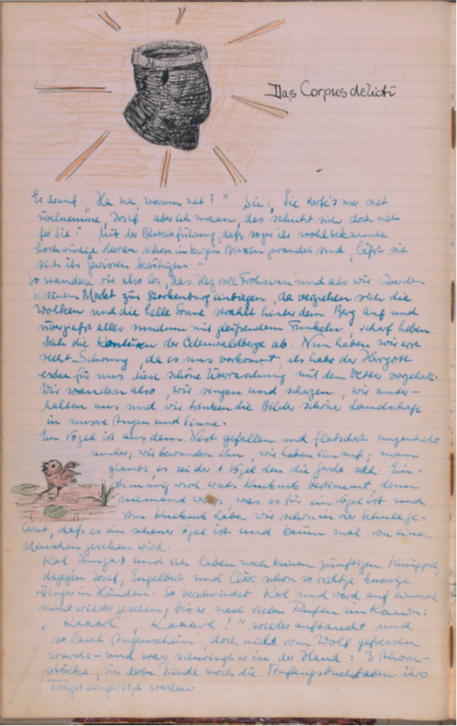 Das Corpus delicti
Er darauf: Ha na, warum net?" Sie: Sie derfe's mer net
iwelnemme, Josef aber ich maan, des schickt sich doch net
for Sie." Mit der Beweisführung, daß sogar die wohlbekannte
hochwürdige Herren schon in kurzen Hosen gewandert sind, läßt sie
sich ihr Gewissen beruhigen. -
So wandern wir also los, das Herz voll Frohsinn und als wir über den
kleinen Model zur Starkenburg einbiegen, da verziehen sich die
Wolken und die helle Sonne strahlt hinter dem Berg auf und
übergießt alles rundum mit gleißendem Funkeln, scharf heben
sich die Konturen der Odenwaldberge ab. Nun haben wir erst
recht Schwung, da es uns vorkommt, als habe der Herrgott
extra für uns diese schöne Überraschung mit dem Wetter vorgehabt.
Wir wandern also, wir singen und scherzen, wir unter-
halten uns und wir trinken die Bilder schöner Landschaft
in unsere Augen und Sinne.
Ein Vogel ist aus dem Nest gefallen und flatschert ungeschickt
umher, wir bewundern ihn, wir heben ihn auf; man
glaubt es sei der 1. Vogel den die Erde sah. Ein-
stimmig wird was Kuckuck bestimmt, denn
niemand weiß, was es für ein Vogel ist und
vom Kuckuck haben wir schon in der Schule ge-
lernt, daß es ein scheuer Vogel ist und kaum mal von einem
Menschen gesehen wird.
Karl und wir haben noch keinen zünftigen Knüppel,
dagegen Josef, Engelbert und schon so richtig knorrige
Dinger in Händen. So verschwindet Karl und ward auf einmal
nicht wieder gesehen, bis er nach vielen Rufen im Kanon:
"Kaaarl, Kaaarl!" wieder auftaucht und
so laut Augenschein, doch nicht vom Wolf gefressen
wurde - und was schwingt er in der Hand: 3
stöcke, in deren Rinde noch die Anfangsbuchstaben ihrer
Träger eingeritzt werden.